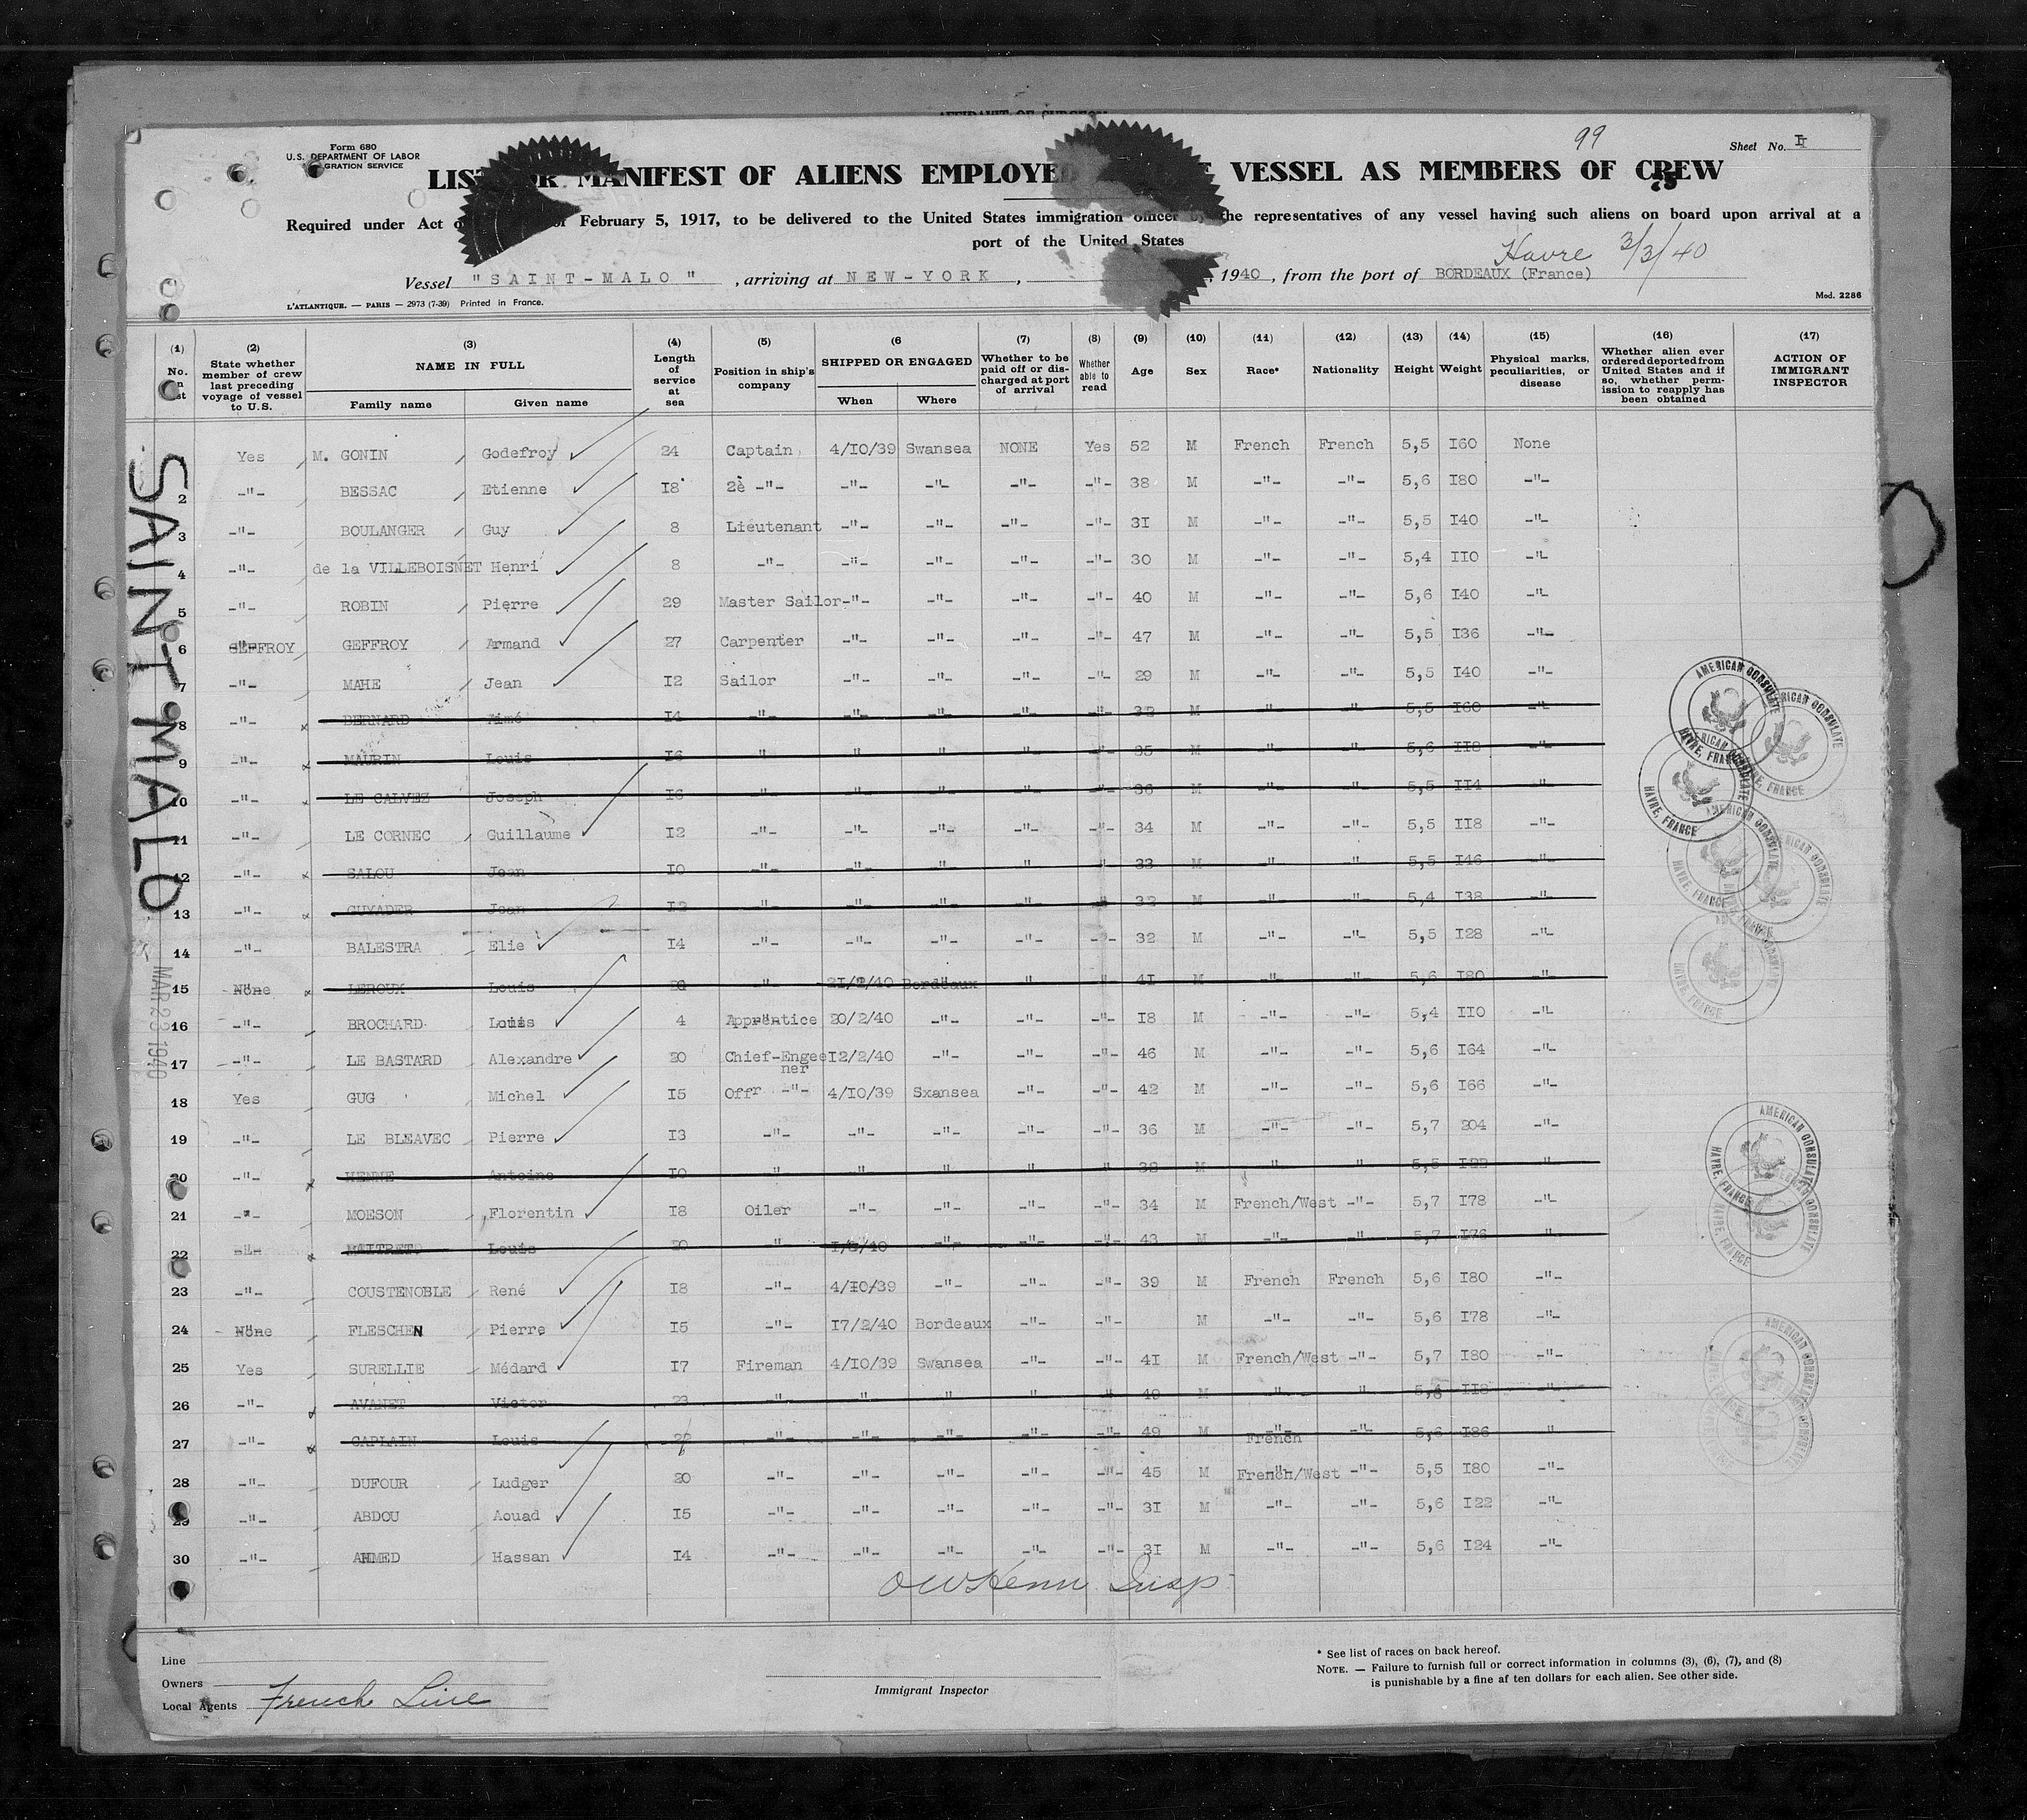 AFFIDAVIT OF SURGEON
99
Sheet No. I
Form 680
U.S. DEPARTMENT OF LABOR
GRATION SERVICE
LIST OR MANIFEST OF ALIENS EMPLOYED VESSEL AS MEMBERS OF CREW
Required under Act of February 5, 1917, to be delivered to the United States immigration officer by the representatives of any vessel having such aliens on board upon arrival at a
port of the United States
Havre 3/3/40
Vessel "SAINT-MALO", arriving at NEW-YORK, 1940, from the port of BORDEAUX (France)
L'ATLANTIQUE. — PARIS — 2973 (7-39) Printed in France.
Mod. 2286
(1) No.
(2) State whether member of crew last preceding voyage of vessel to U.S.
(3) NAME IN FULL Family name Given name
(4) Length of service at sea
(5) Position in ship's company
(6) SHIPPED OR ENGAGED When Where
(7) Whether to be paid off or discharged at port of arrival
(8) Whether able to read
(9) Age
(10) Sex
(11) Race*
(12) Nationality
(13) Height
(14) Weight
(15) Physical marks, peculiarities, or disease
(16) Whether alien ever ordered deported from United States and if so, whether permission to reapply has been obtained
(17) ACTION OF IMMIGRANT INSPECTOR
SAINT MALO
MAR 23 1940
Yes M. GONIN Godefroy 24 Captain 4/10/39 Swansea NONE Yes 52 M French French 5,5 160 None
2 -"- BESSAC Etienne 18 2è -"- -"- -"- -"- -"- 38 M -"- -"- 5,6 180 -"-
3 -"- BOULANGER Guy 8 Lieutenant -"- -"- -"- -"- 31 M -"- -"- 5,5 140 -"-
4 -"- de la VILLEBOISNET Henri 8 -"- -"- -"- -"- -"- 30 M -"- -"- 5,4 110 -"-
5 -"- ROBIN Pierre 29 Master Sailor -"- -"- -"- -"- 40 M -"- -"- 5,6 140 -"-
6 GEFFROY GEFFROY Armand 27 Carpenter -"- -"- -"- -"- 47 M -"- -"- 5,5 136 -"-
7 -"- MAHE Jean 12 Sailor -"- -"- -"- -"- 29 M -"- -"- 5,5 140 -"-
8 -"- BERNARD Aimé 14 -"- -"- -"- -"- -"- 32 M -"- -"- 5,5 160 -"-
9 -"- MAURIN Louis 16 -"- -"- -"- -"- -"- 35 M -"- -"- 5,6 118 -"-
10 -"- LE CALVEZ Joseph 16 -"- -"- -"- -"- -"- 36 M -"- -"- 5,5 114 -"-
11 -"- LE CORNEC Guillaume 12 -"- -"- -"- -"- -"- 34 M -"- -"- 5,5 118 -"-
12 -"- SALOU Jean 10 -"- -"- -"- -"- -"- 33 M -"- -"- 5,5 146 -"-
13 -"- GUYADER Jean 12 -"- -"- -"- -"- -"- 32 M -"- -"- 5,4 138 -"-
14 -"- BALESTRA Elie 14 -"- -"- -"- -"- -"- 32 M -"- -"- 5,5 128 -"-
15 None LEROUX Louis -"- 21/2/40 Bordeaux -"- -"- 41 M -"- -"- 5,6 180 -"-
16 -"- BROCHARD Louis 4 Apprentice 20/2/40 -"- -"- -"- 18 M -"- -"- 5,4 110 -"-
17 -"- LE BASTARD Alexandre 20 Chief-Engeener 12/2/40 -"- -"- -"- 46 M -"- -"- 5,6 164 -"-
18 Yes GUG Michel 15 Offr -"- 4/10/39 Sxansea -"- -"- 42 M -"- -"- 5,6 166 -"-
19 -"- LE BLEAVEC Pierre 13 -"- -"- -"- -"- -"- 36 M -"- -"- 5,7 204 -"-
20 -"- Antoine 10 -"- -"- -"- -"- -"- 38 M -"- -"- 5,5 -"-
21 -"- MOESON Florentin 18 Oiler -"- -"- -"- -"- 34 M French/West -"- 5,7 178 -"-
22 -"- Louis 20 -"- -"- -"- -"- 43 M -"- -"- 5,7 176 -"-
23 -"- COUSTENOBLE René 18 -"- 4/10/39 -"- -"- -"- 39 M French French 5,6 180 -"-
24 None FLESCHEN Pierre 15 -"- 17/2/40 Bordeaux -"- -"- M -"- -"- 5,6 178 -"-
25 Yes SURELLIE Médard 17 Fireman 4/10/39 Swansea -"- -"- 41 M French/West -"- 5,7 180 -"-
26 -"- AVANET Victor 23 -"- -"- -"- -"- -"- 49 M -"- -"- 118 -"-
27 -"- CAPLAIN Louis -"- -"- -"- -"- -"- 49 M French -"- 5,6 186 -"-
28 -"- DUFOUR Ludger 20 -"- -"- -"- -"- -"- 45 M French/West -"- 5,5 180 -"-
29 -"- ABDOU Aouad 15 -"- -"- -"- -"- -"- 31 M -"- -"- 5,6 122 -"-
30 -"- AHMED Hassan 14 -"- -"- -"- -"- -"- 31 M -"- -"- 5,6 124 -"-
AMERICAN CONSULATE
HAVRE, FRANCE
Insp
Line
Owners
Local Agents French Line
Immigrant Inspector
* See list of races on back hereof.
NOTE. — Failure to furnish full or correct information in columns (3), (6), (7), and (8)
is punishable by a fine af ten dollars for each alien. See other side.